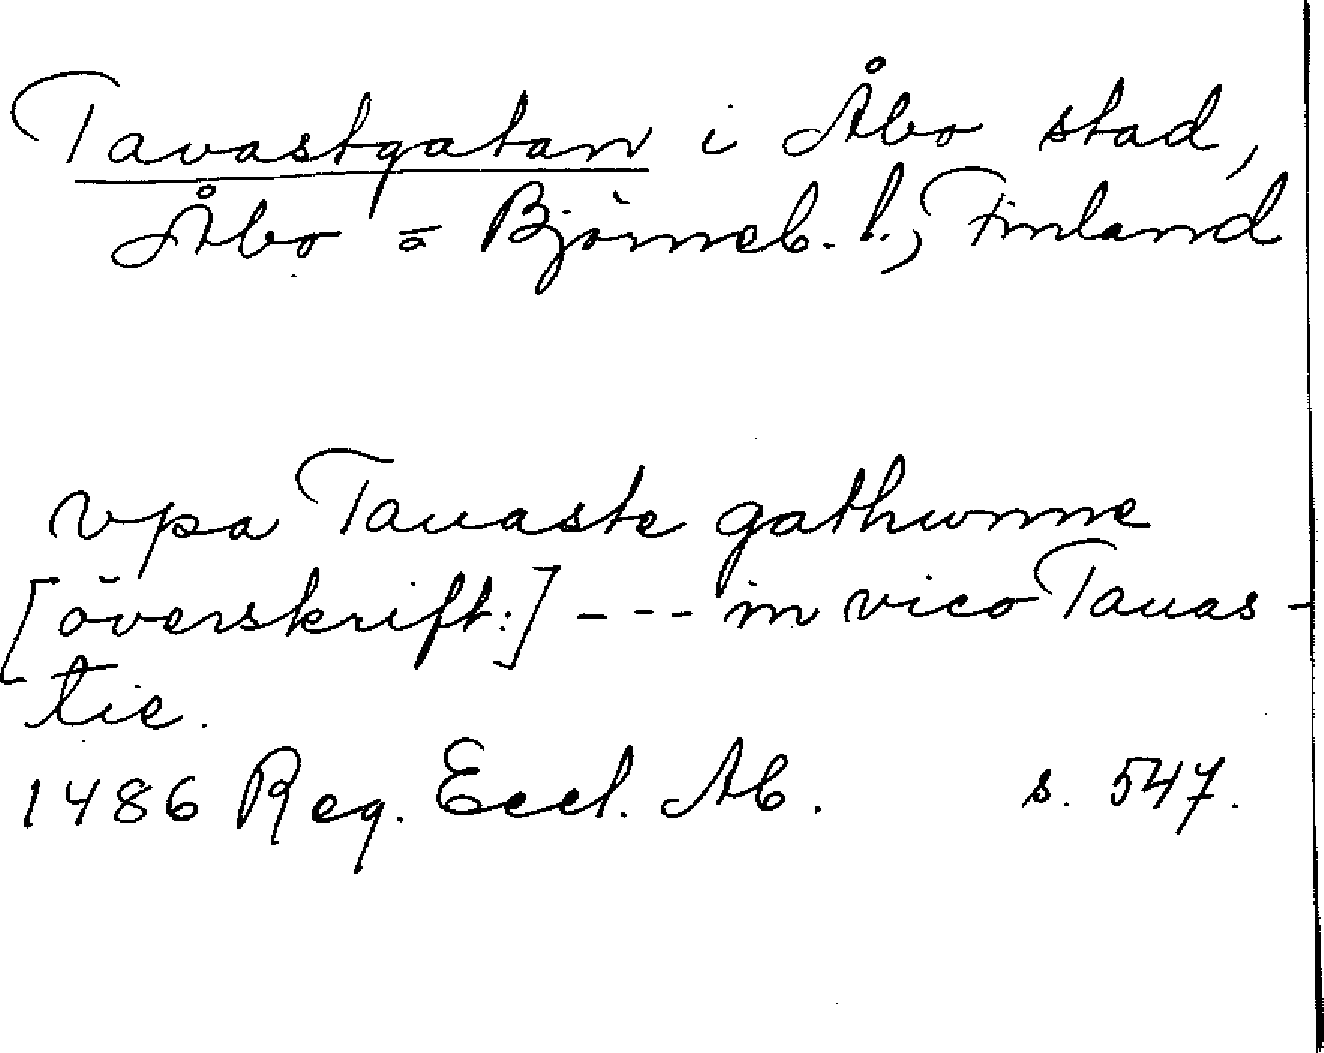 Tavastgatan i Åbo stad,
Åbo o Björneb. l., Finland
vpa Tauaste gathunne
[överskrift:] --- in vico Tauas-
tie.
1486 Reg. Eccl. Ab. s. 547.